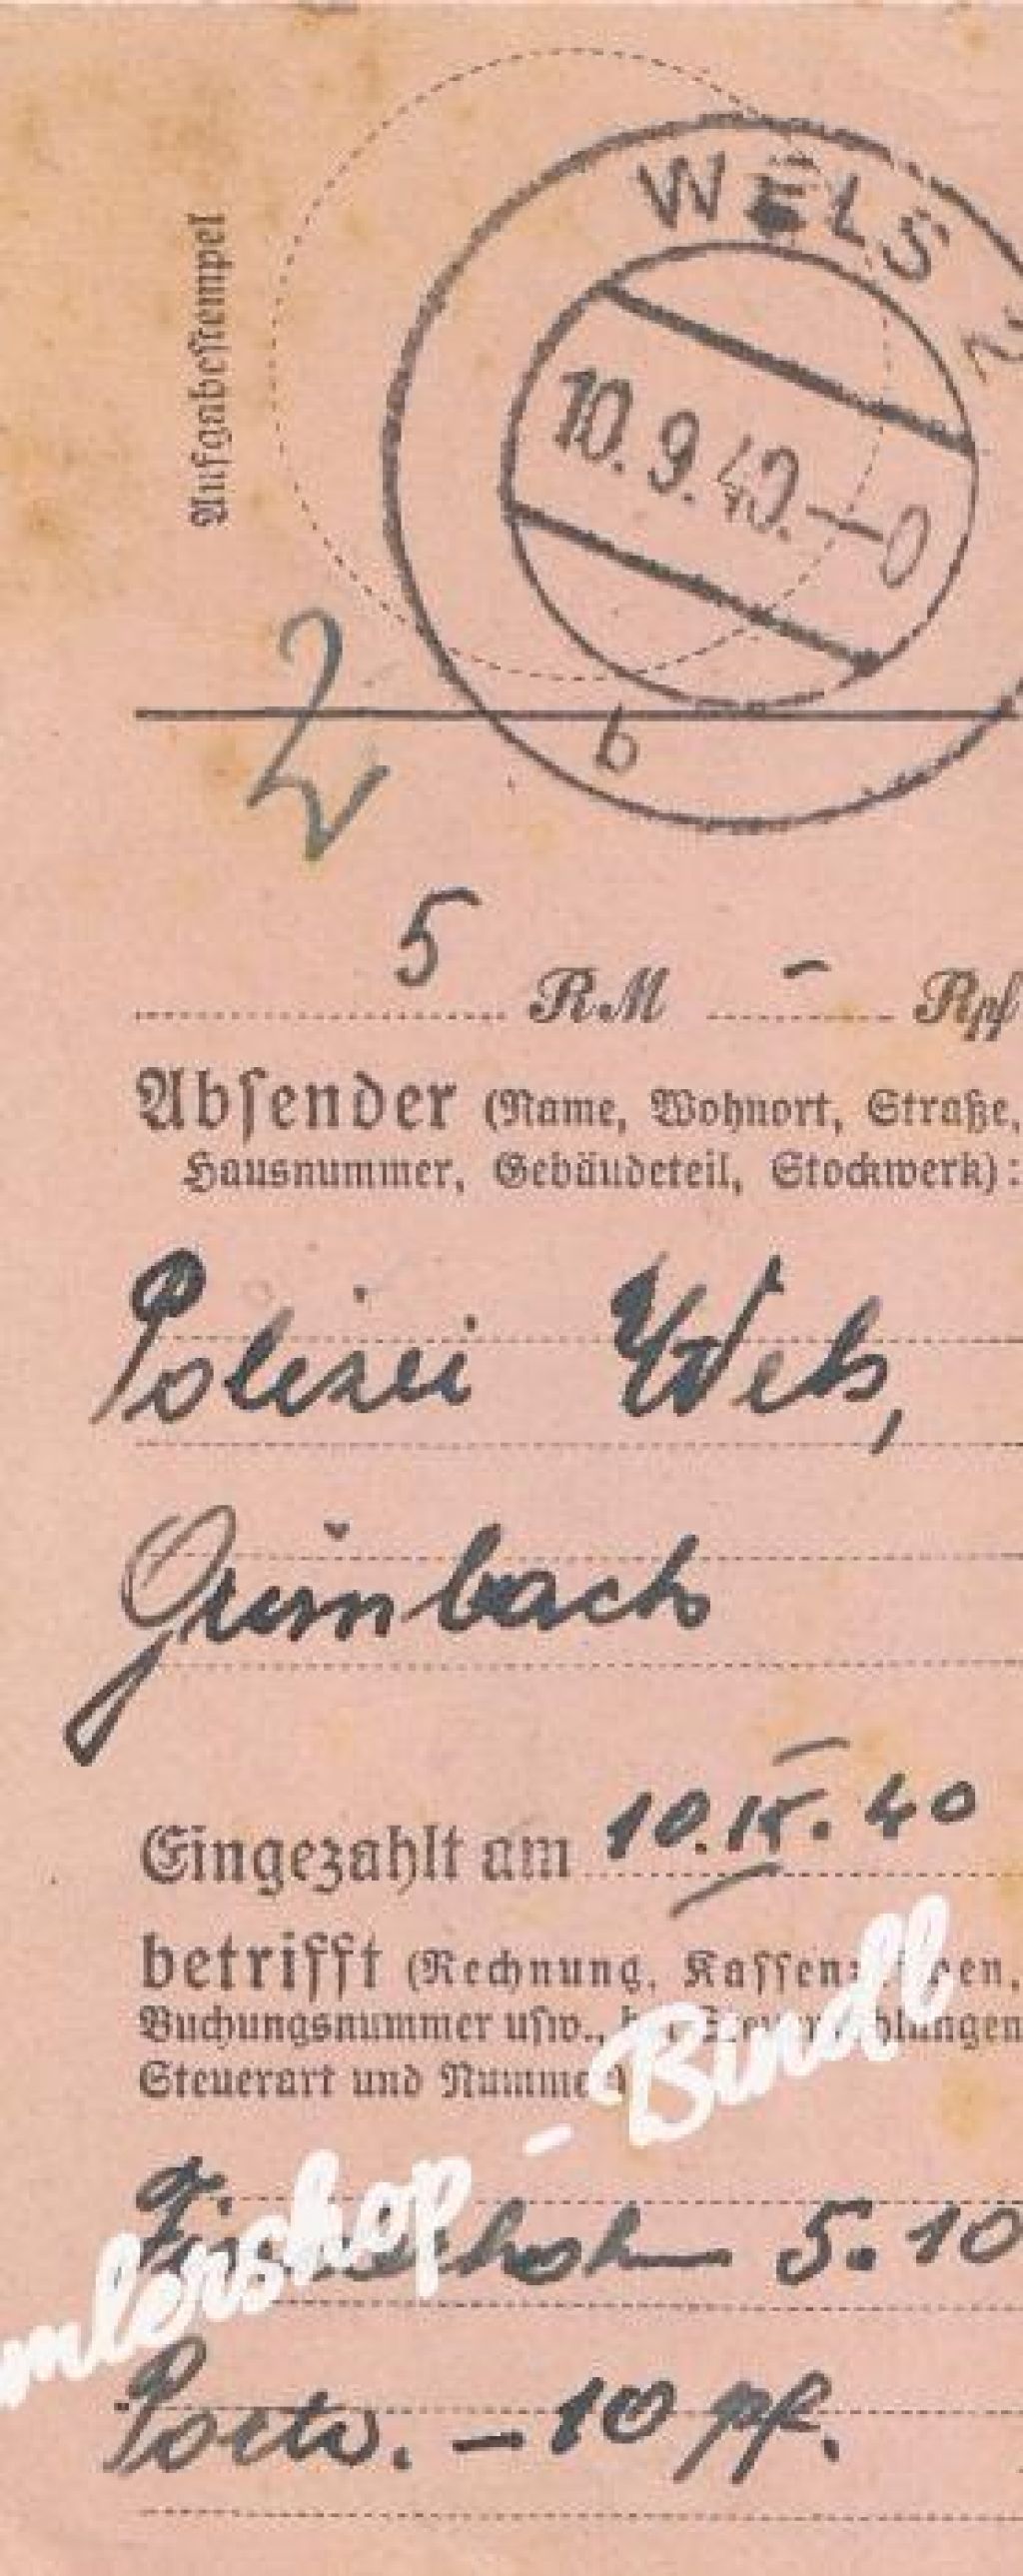 WELS 2
10.9.40.–0
b
Aufgabestempel
2
5 RM – Rpf
Absender (Name, Wohnort, Straße,
Hausnummer, Gebäudeteil, Stockwerk):
Polizei Wels,
Grünbach
Eingezahlt am 10.IX.40
betrifft (Rechnung, Kassenzeichen,
Buchungsnummer usw., bei Steuerzahlungen
Steuerart und Nummer)
5.10
Porto. – 10 pf.
mlershop - Bindl